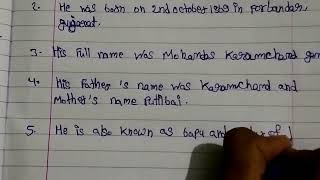 2. He was born on 2nd october 1869 in Porbandar,
gujarat.
3. His Full name was Mohandas Karamchand gan
4. His Father's name was Karamchand and
Mother's name Putlibai.
5. He is also known as bapu and of